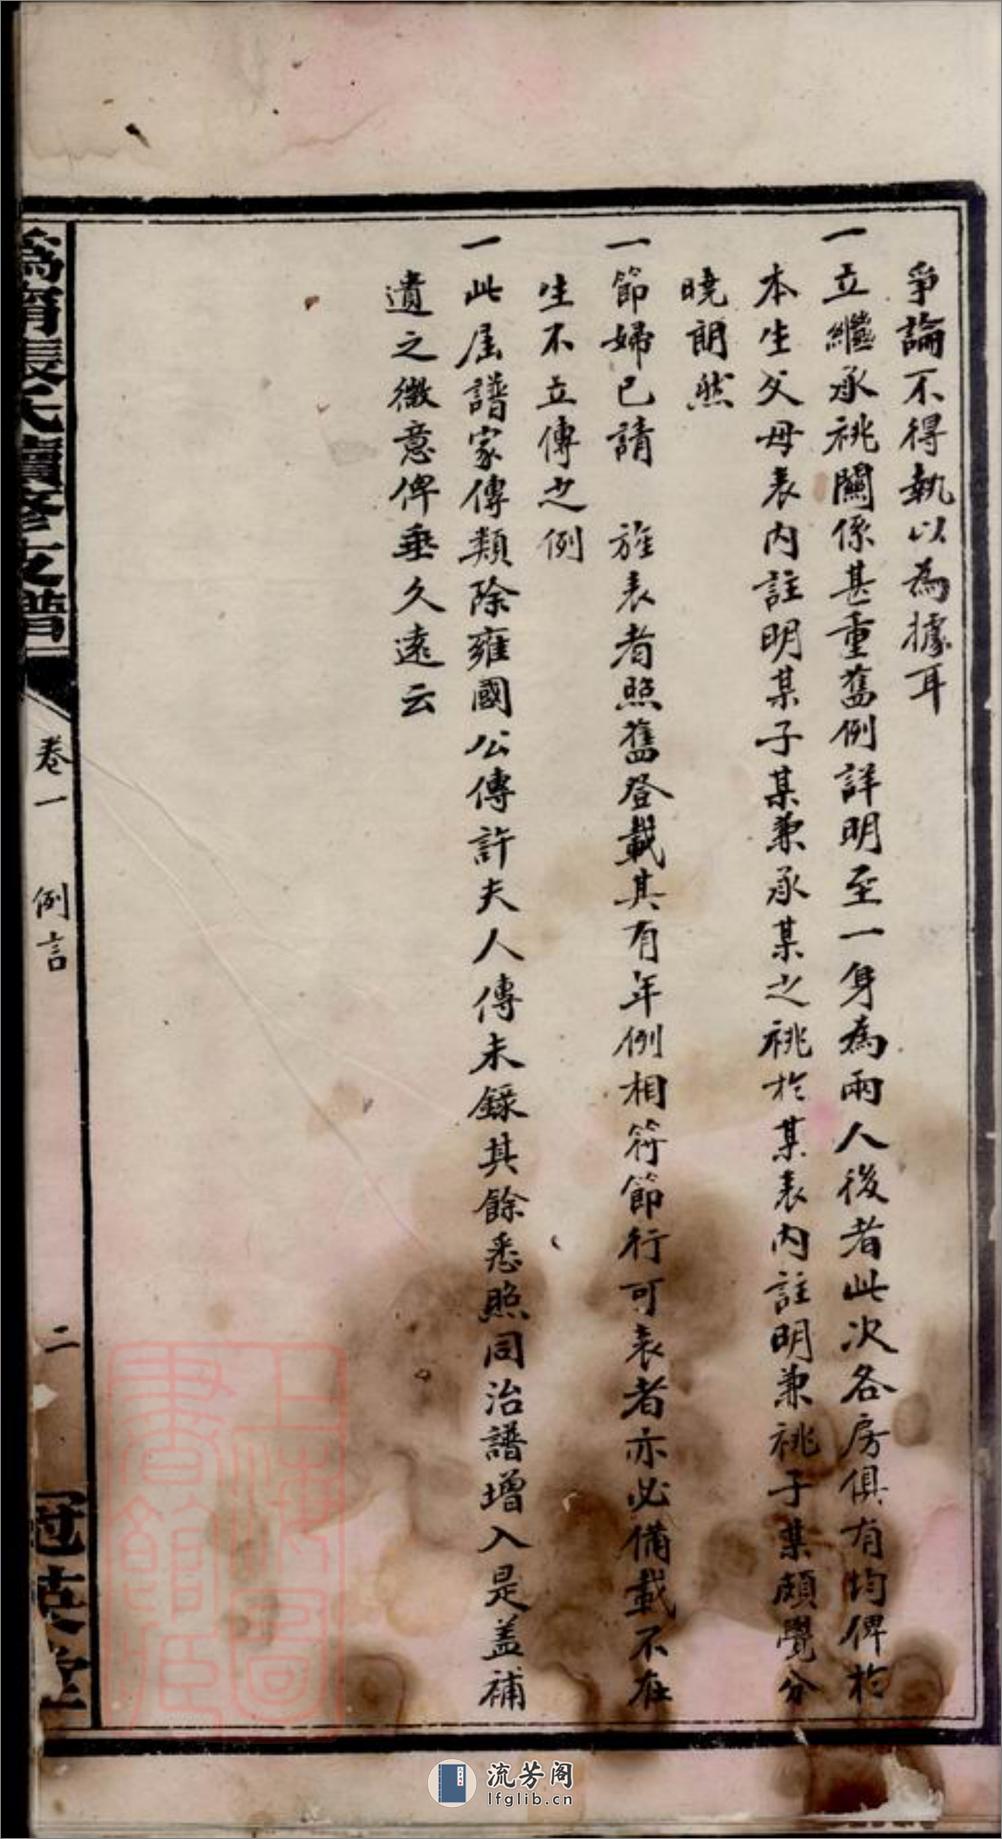 爭論不得執以為據耳
一立繼承祧關係甚重舊例詳明至一身為兩人後者此次各房俱有均俾於
本生父母表內註明某子某兼承某之祧於某表內註明兼祧子某頗覺分
曉朗然
一節婦已請 旌表者照舊登載其有年例相符節行可表者亦必備載不在
生不立傳之例
一此屆譜家傳類除雍國公傳許夫人傳未錄其餘悉照同治譜增入是盖補
遺之微意俾垂久遠云
張氏續修支譜
卷一 例言
二
冠英堂
上海圖書館藏
流芳阁
lfglib.cn